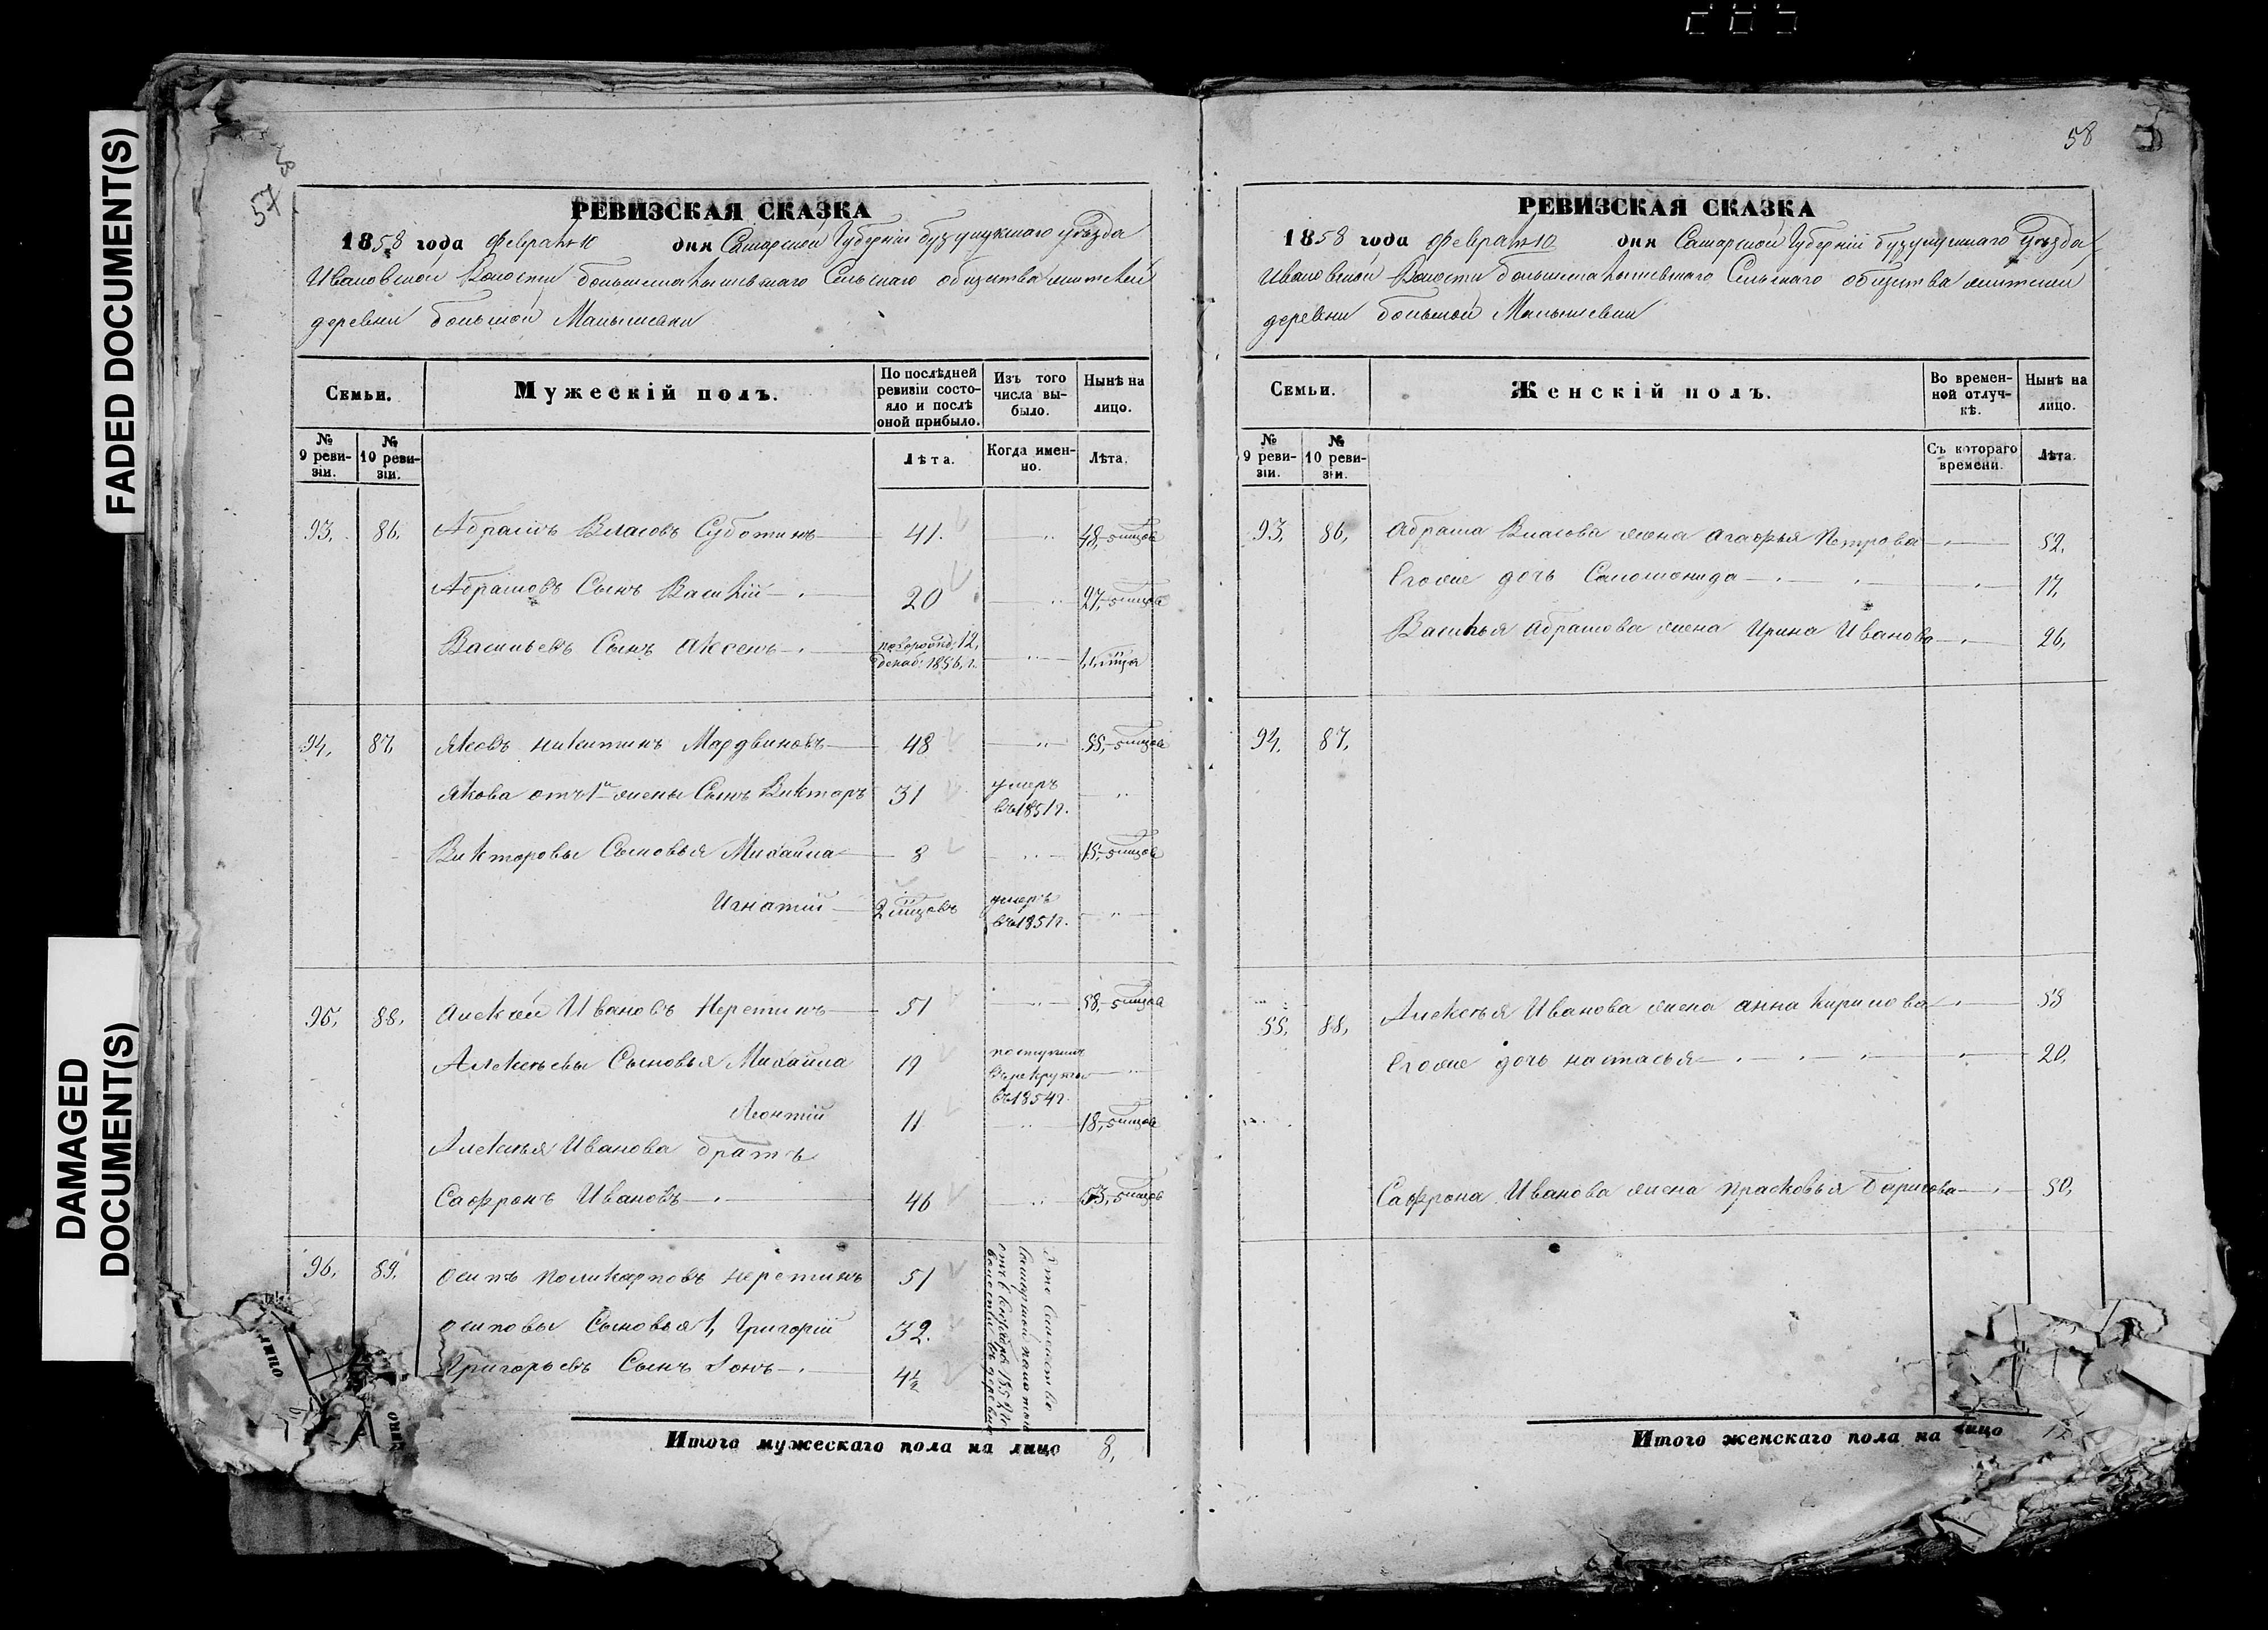 FADED DOCUMENT(S)
DAMAGED
DOCUMENT(S)
57
РЕВИЗСКАЯ СКАЗКА
1858 года февраля 10 дня Самарской Губерніи бузулукскаго уѣзда
Ивановской Волости большемалышевскаго Сельскаго общества жителей
деревни большой Малышевки
Семьи.
Мужескій полъ.
По послѣдней ревизіи состояло и послѣ оной прибыло.
Изъ того числа выбыло.
Нынѣ на лицо.
№ 9 ревизіи.
№ 10 ревизіи.
Лѣта.
Когда именно.
Лѣта.
93. 86. Абрамъ Власовъ Суботинъ 41. 48,
Абрамовъ Сынъ Василій 20 27,
Васильевъ Сынъ Аксенъ 12, декаб: 1856, г.
94. 87. Яковъ никитинъ Мардвиновъ 48 55,
Якова отъ 1й жены Сынъ Викторъ 31 умеръ въ 1851 г.
Викторовы Сыновья Михайла 8 15,
Игнатій 2 умеръ въ 1851 г.
95. 88. Алексѣй Ивановъ Неретинъ 51 58,
Алексѣевы Сыновья Михайла 19 поступилъ въ рекруты въ 1854 г.
Леонтій 11 18,
Алексѣя Иванова братъ
Сафронъ Ивановъ 46 53,
96. 89. Осипъ Поликарповъ неретинъ 51
Осиповы Сыновья 1, Григорій 32.
Григорьевъ Сынъ Іонъ 4½
Итого мужескаго пола на лицо 8,
58
РЕВИЗСКАЯ СКАЗКА
1858 года февраля 10 дня Самарской Губерніи бузулукскаго уѣзда
Ивановской Волости большемалышевскаго Сельскаго общества жителей
деревни большой Малышевки
Семьи.
Женскій полъ.
Во временной отлучкѣ.
Нынѣ на лицо.
№ 9 ревизіи.
№ 10 ревизіи.
Съ котораго времени.
Лѣта.
93. 86, Абрама Власова жена Агафья Петрова 52,
Его же дочь Соломонида 17,
Василья Абрамова жена Ирина Иванова 26,
94. 87,
55. 88, Алексѣя Иванова жена анна кирилова 55
Его же дочь настасья 20,
Сафрона Иванова жена прасковья борисова 50,
Итого женскаго пола на лицо